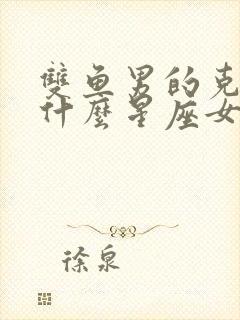 雙魚男的克
什麼星座女
徐泉